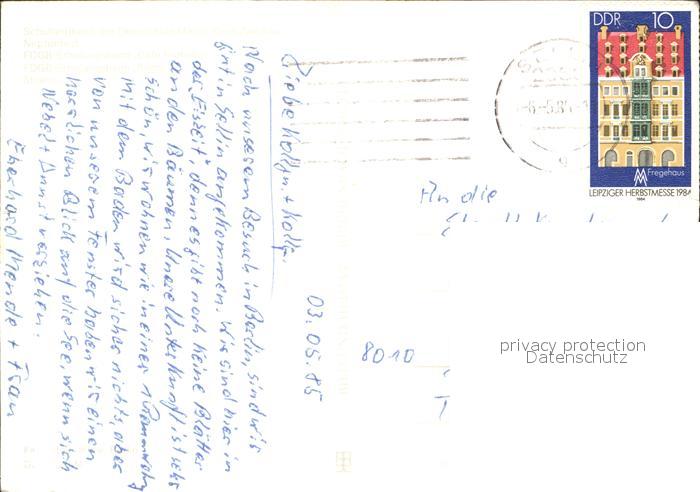 Liebe Kollgn. + Kollg.
Nach unserem Besuch in Berlin, sind wir
gut in Sellin angekommen. Wir sind hier in
der Eiszeit, denn es gibt noch keine Blätter
an den Bäumen. Unsere Unterkunft ist sehr
schön, wir wohnen wie in einer 1 Raumwohng
mit dem Baden wird sicher nichts, aber
von unserem Fenster haben wir einen
herrlichen Blick auf die See, wenn sich
Nebel + Dunst verziehen.
Eberhard Mende + Frau
03.05.85
An die
8010
DDR 10
Fregehaus
LEIPZIGER HERBSTMESSE 1984
1984
privacy protection
Datenschutz